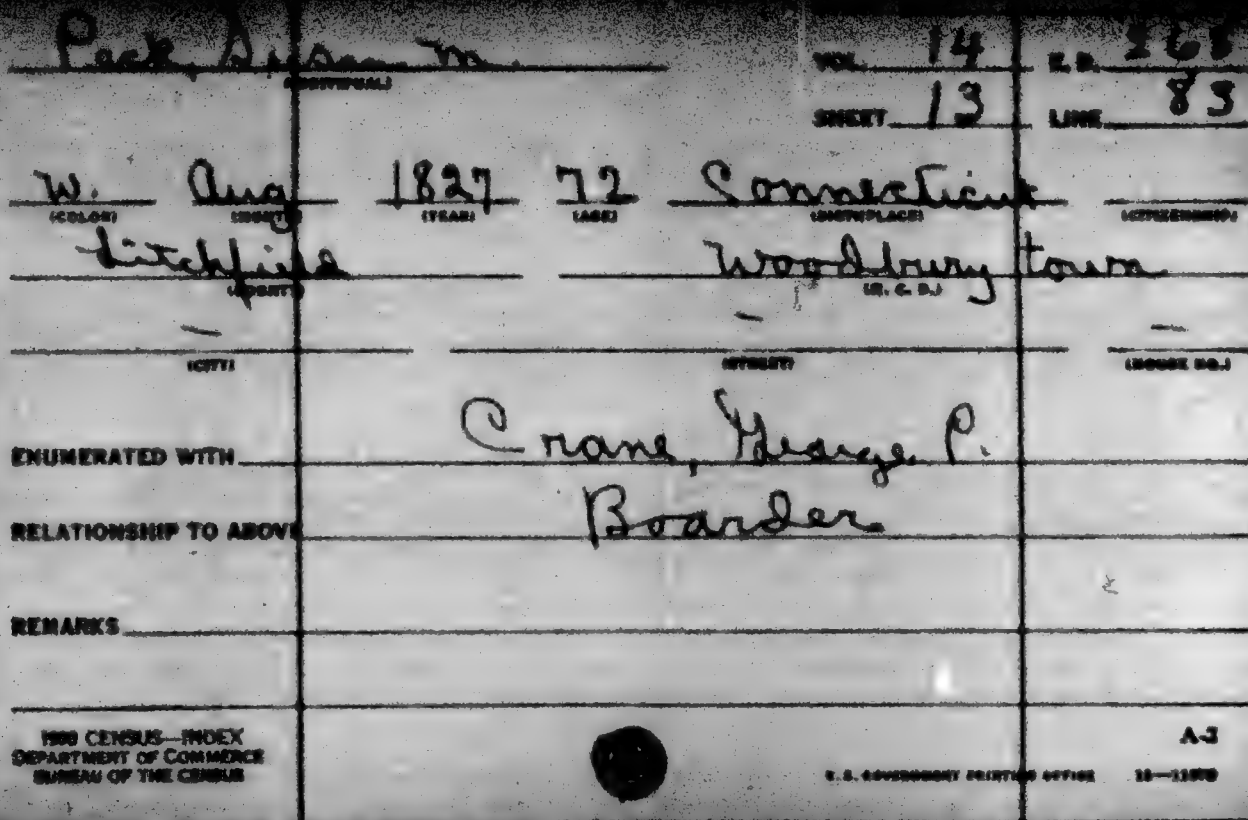 Peck, Susan M.
(INDIVIDUAL)
VOL. 14 E. D. 265
SHEET 13 LINE 83
W. Aug 1827 72 Connecticut
(COLOR) (MONTH) (YEAR) (AGE) (BIRTHPLACE) (CITIZENSHIP)
Litchfield Woodbury town
(COUNTY) (M. C. D.)
— — —
(CITY) (STREET) (HOUSE NO.)
ENUMERATED WITH Crane, George P.
RELATIONSHIP TO ABOVE Boarder
REMARKS
1900 CENSUS—INDEX A-2
DEPARTMENT OF COMMERCE
BUREAU OF THE CENSUS U. S. GOVERNMENT PRINTING OFFICE